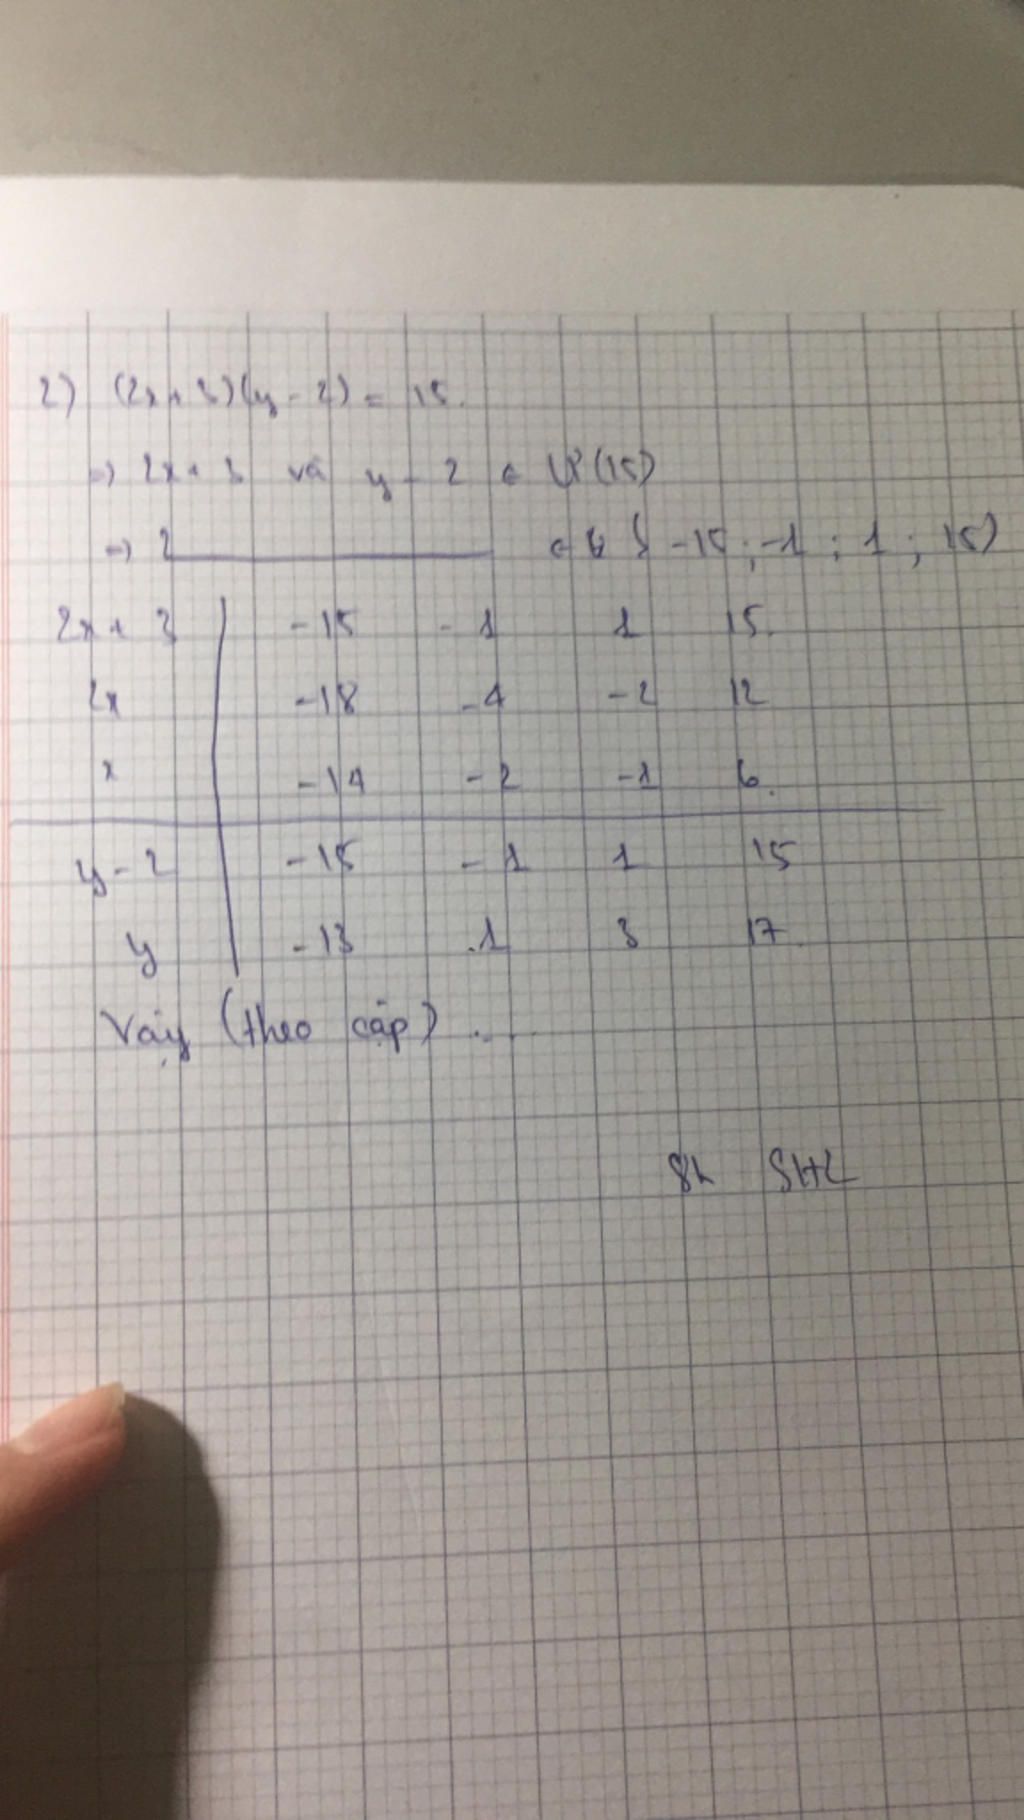 2) (2x+3)(y-2) = 15.
=> 2x+3 và y-2 ∈ Ư(15)
=> 2 ∈ { -15; -1; 1; 15}
2x+3 -15 -1 1 15.
2x -18 -4 -2 12
x -14 -2 -1 6.
y-2 -15 -1 1 15
y -13 .1 3 17.
Vậy (theo cặp) ....
8h